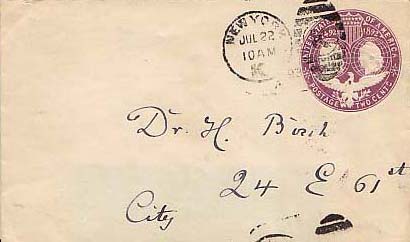 NEW YORK
JUL 22
10 AM
K
UNITED STATES OF AMERICA
1492 1892
POSTAGE TWO CENTS
Dr. H.
24 E 61st
City